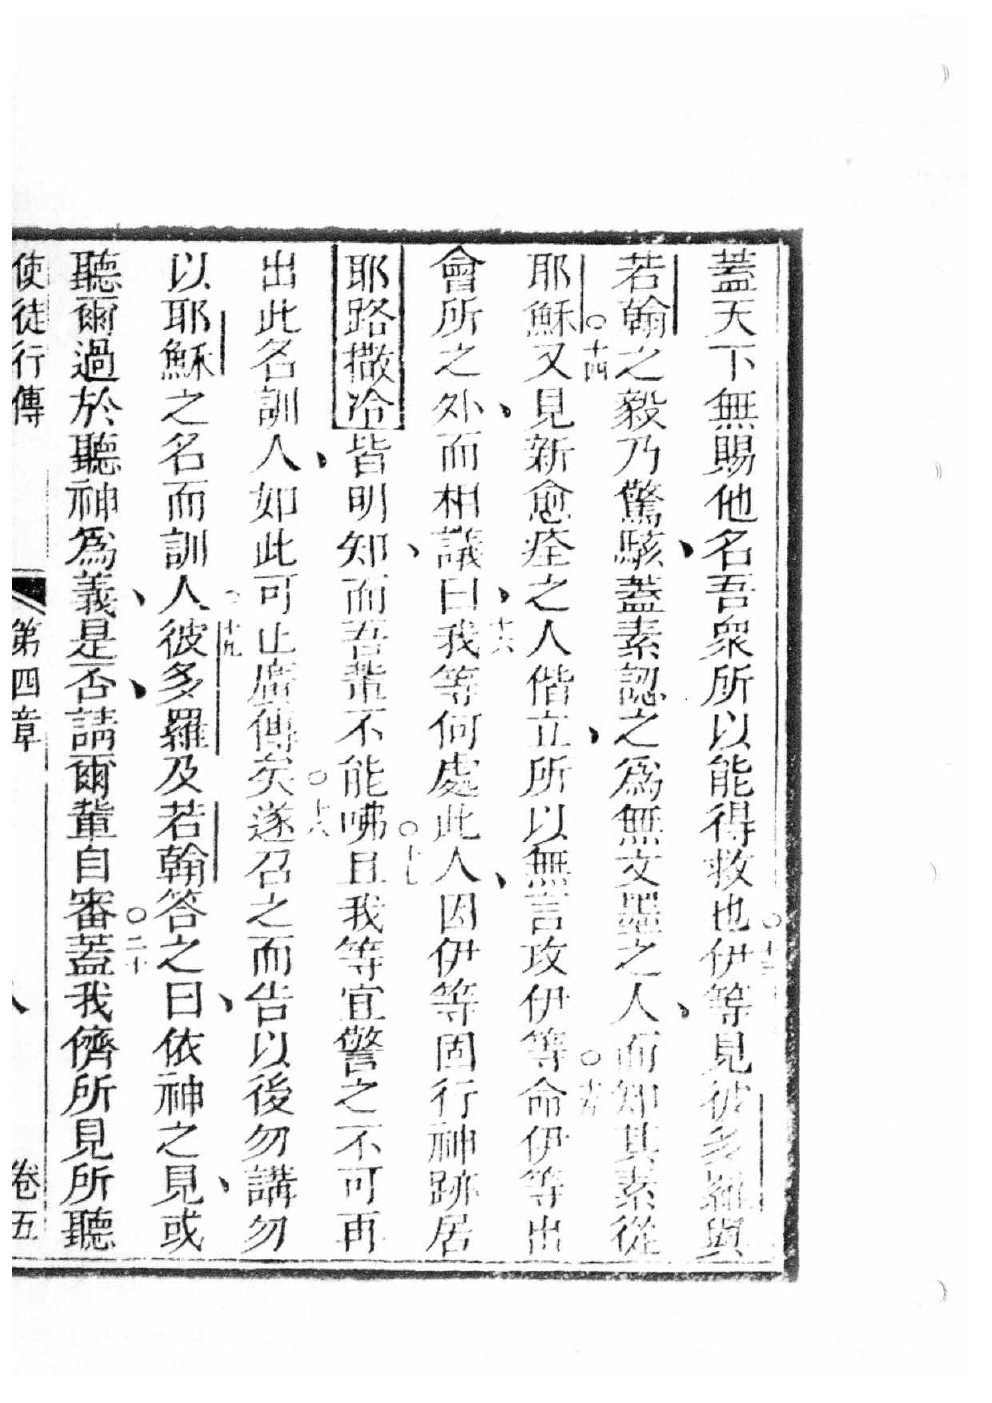 蓋天下無賜他名吾衆所以能得救也○十三伊等見彼多羅與
若翰之毅乃驚駭、蓋素認之爲無文墨之人、而知其素從
耶穌○十四又見新愈痊之人偕立、所以無言攻○十五伊等命伊等出
會所之外、而相議曰、○十六我等何處此人、因伊等固行神跡居
耶路撒冷皆明知、而吾輩不能咈○十七且我等宜警之不可再
出此名訓人、如此可止廣傳矣○十八遂召之而告以後勿講勿
以耶穌之名而訓人○十九彼多羅及若翰答之曰、依神之見、或
聽爾過於聽神爲義、是否、請爾輩自審○二十蓋我儕所見所聽
使徒行傳 第四章 八 卷五